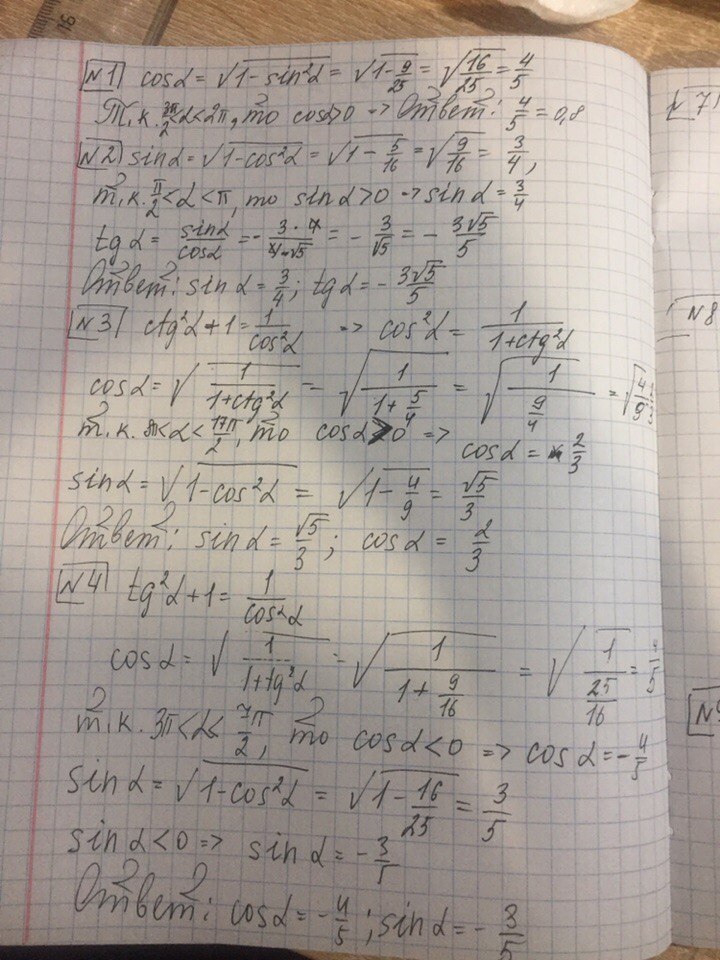 №1 cosα = √(1-sin²α) = √(1-9/25) = √(16/25) = 4/5
Т.к. 3π/2<α<2π, то cosα>0 => Ответ: 4/5 = 0,8
№2 sinα = √(1-cos²α) = √(1-5/16) = √(9/16) = 3/4,
т.к. π/2<α<π, то sinα>0 => sinα = 3/4
tgα = sinα/cosα = -3·4/4·√5 = -3/√5 = -3√5/5
Ответ: sinα = 3/4; tgα = -3√5/5
№3 ctg²α+1 = 1/cos²α => cos²α = 1/(1+ctg²α)
cosα = √(1/(1+ctg²α)) = √(1/(1+5/4)) = √(1/(9/4)) = √(4/9)
т.к. <α<17π/2, то cosα>0 => cosα = 2/3
sinα = √(1-cos²α) = √(1-4/9) = √5/3
Ответ: sinα = √5/3; cosα = 2/3
№4 tg²α+1 = 1/cos²α
cosα = √(1/(1+tg²α)) = √(1/(1+9/16)) = √(1/(25/16)) = 4/5
т.к. 3π<α<7π/2, то cosα<0 => cosα = -4/5
sinα = √(1-cos²α) = √(1-16/25) = 3/5
sinα<0 => sinα = -3/5
Ответ: cosα = -4/5; sinα = -3/5
№7
№8